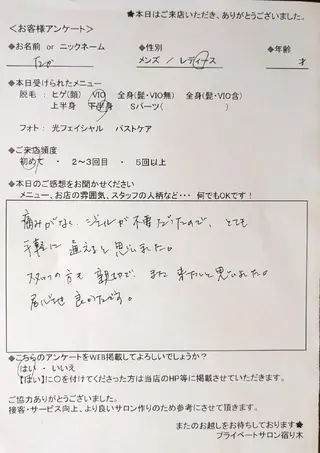 ★本日はご来店いただき、ありがとうございました。
<お客様アンケート>
◆お名前 or ニックネーム ◆性別 ◆年齢
メンズ / レディース 才
◆本日受けられたメニュー
脱毛 : ヒゲ(顔) VIO 全身(髭・VIO無) 全身(髭・VIO含)
上半身 下半身 Sパーツ( )
フォト: 光フェイシャル バストケア
◆ご来店頻度
初めて ・ 2~3回目 ・ 5回以上
◆本日のご感想をお聞かせください
メニュー、お店の雰囲気、スタッフの人柄など・・・ 何でもOKです!
痛みがなく、ジェルが不要だったので、とても
手軽に通えると思いました。
スタッフの方も親切で、また来たいと思いました。
居心地良かったです。
◆こちらのアンケートをWEB掲載してよろしいでしょうか?
はい ・ いいえ
【はい】に○を付けてくださった方は当店のHP等に掲載させていただきます。
ご協力ありがとうございました。
接客・サービス向上、より良いサロン作りのため参考にさせて頂きます。
またのお越しをお待ちしております★
プライベートサロン宿り木